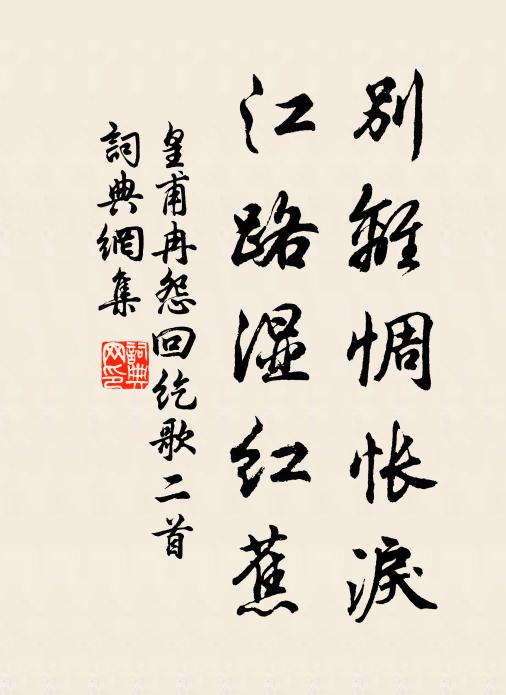 別離惆悵淚
江路湿红蕉
皇甫冉怨回紇歌二首
詞典網集
詞典网印